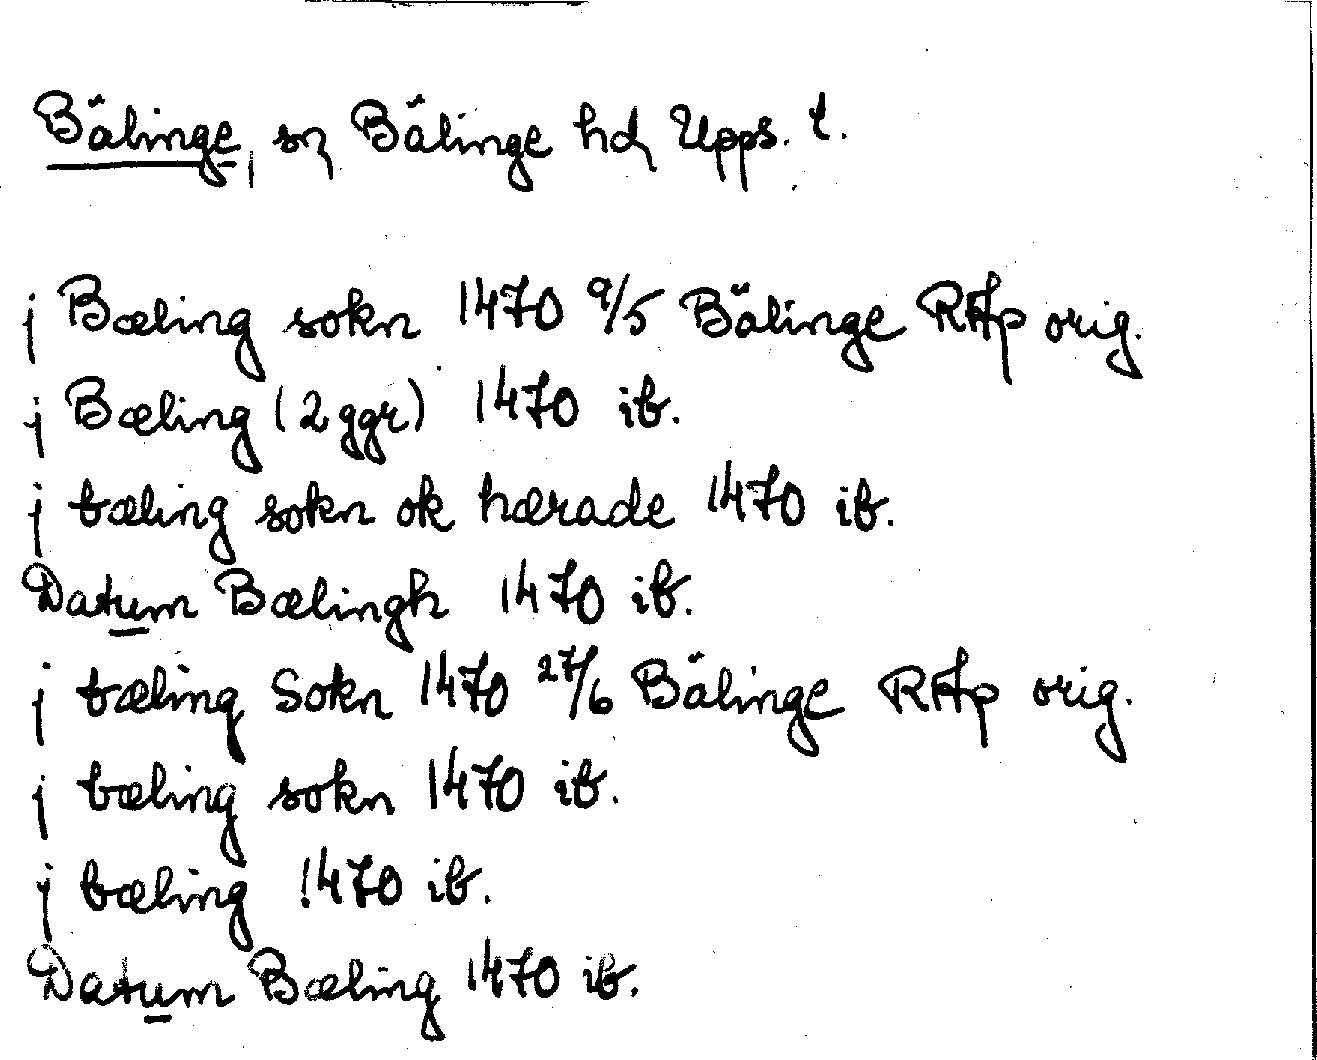 Bälinge, sn Bälinge hd Upps. l.
j Bæling sokn 1470 9/5 Bälinge RAp orig.
j Bæling (2 ggr) 1470 ib.
j bæling sokn ok hærade 1470 ib.
Datum Bælingh 1470 ib.
j bæling Sokn 1470 27/6 Bälinge RAp orig.
j bæling sokn 1470 ib.
j bæling 1470 ib.
Datum Bæling 1470 ib.